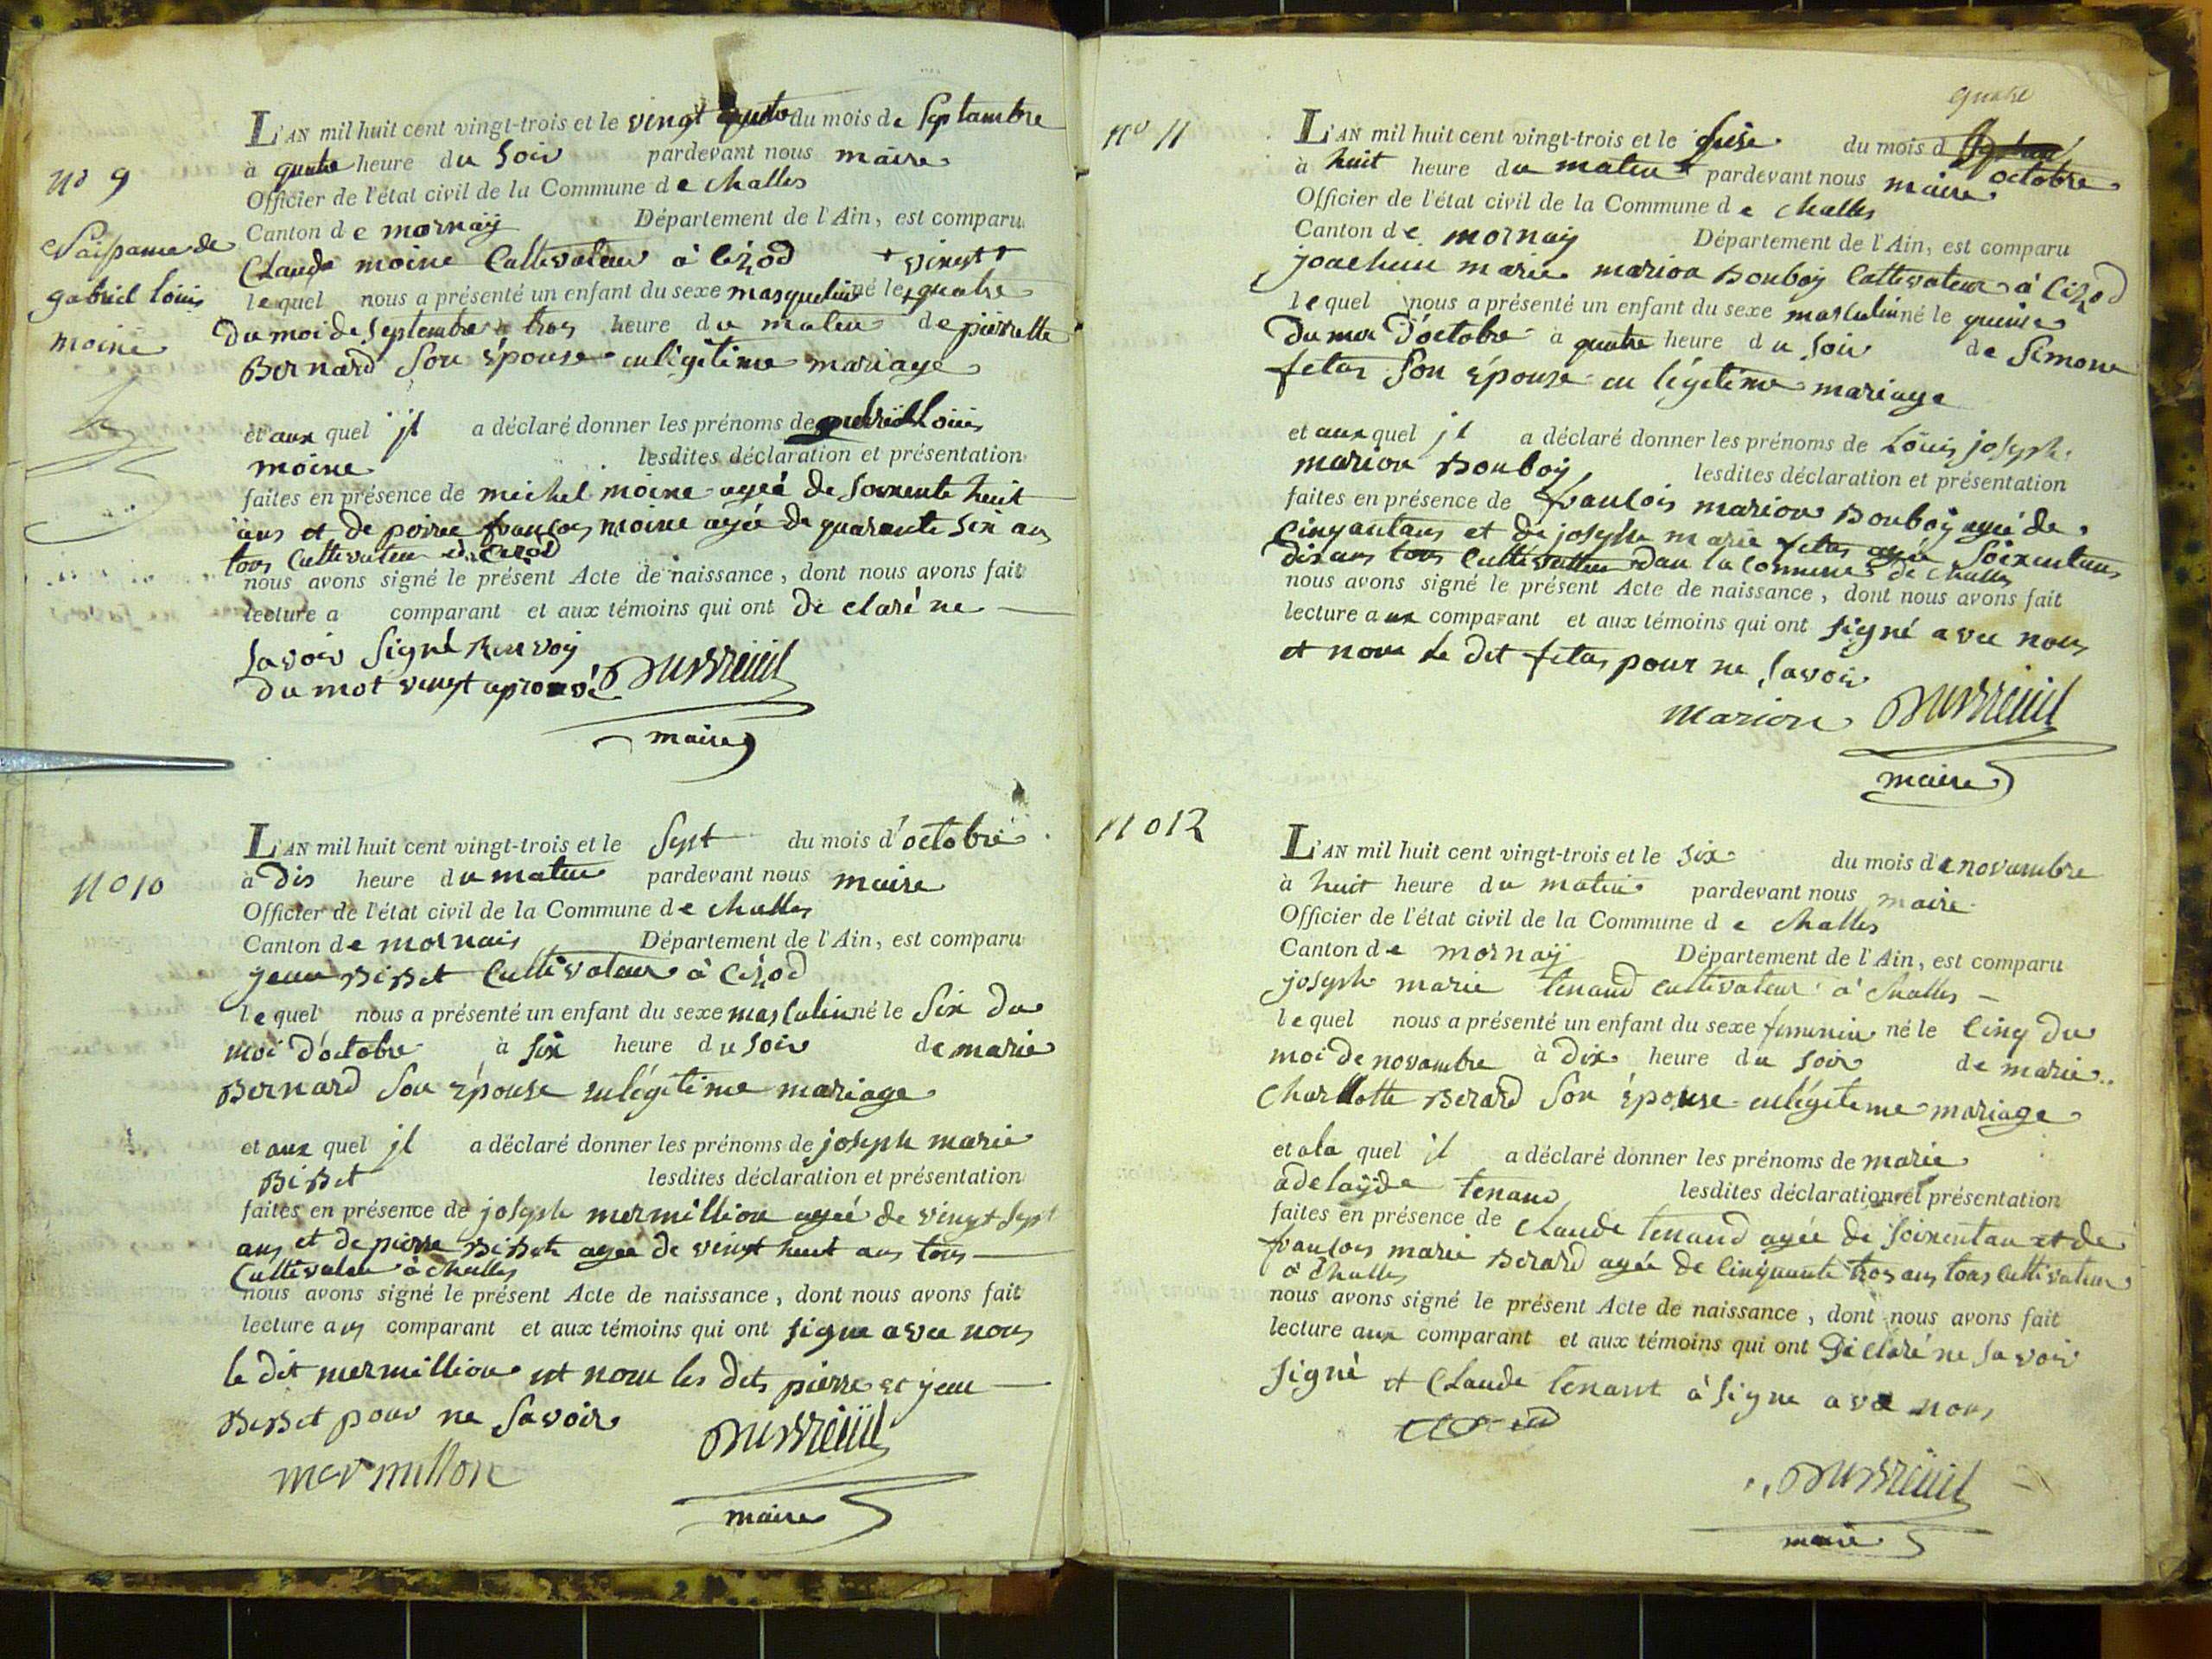 no 9
Naissance de
gabriel louis
moine
L'AN mil huit cent vingt-trois et le vingt quatre du mois de Septambre
à quatre heure du Soir pardevant nous maire
Officier de l'état civil de la Commune de challes
Canton de mornaÿ Département de l'Ain, est comparu
Claude moine Cultivateur à Cizod + vingt +
lequel nous a présenté un enfant du sexe masquelin né le + quatre
du moi de Septembre a trois heure du matin de pierrette
Bernard Son épouse en légitime mariage
et aux quel jl a déclaré donner les prénoms de gabriel Louis
moine lesdites déclaration et présentation
faites en présence de michel moine ageé de Soixente huit
ans et de peirre françois moine agée de quarante Six ans
tous Cultivateur à Cizod
nous avons signé le présent Acte de naissance, dont nous avons fait
lecture a comparant et aux témoins qui ont declaré ne
Savoir Signé Renvoy
du mot vingt aprouvé Dubreüil
maire
no 10
L'AN mil huit cent vingt-trois et le Sept du mois d'octobre
à Dis heure du matin pardevant nous maire
Officier de l'état civil de la Commune de challes
Canton de mornais Département de l'Ain, est comparu
jean BiBet Cultivateur à Cizod
lequel nous a présenté un enfant du sexe masculin né le Six du
moi d'octobre à Six heure du Soir de marie
Bernard Son épouse en légitime mariage
et aux quel jl a déclaré donner les prénoms de joseph marie
BiBet lesdites déclaration et présentation
faites en présence de joseph mermillion ageé de vingt Sept
ans et de pierre BiBet agée de vingt huit ans tous
Cultivateur à challes
nous avons signé le présent Acte de naissance, dont nous avons fait
lecture aus comparant et aux témoins qui ont Signe avec nous
le dit mermillion et nom les dits pierre et jean
BiBet pour ne Savoir
mermillon Dubreüil
maire
quatre
no 11
L'AN mil huit cent vingt-trois et le Seise du mois d octobre
à huit heure du matin pardevant nous maire
Officier de l'état civil de la Commune de challes
Canton de mornay Département de l'Ain, est comparu
joachim marie marion Bonboy Cultivateur à Cizod
lequel nous a présenté un enfant du sexe masculin né le quinse
du moi d'octobre à quatre heure du Soir de Simone
fetas Son épouse en légitime mariage
et aux quel jl a déclaré donner les prénoms de Louis joseph
marion Bonboy lesdites déclaration et présentation
faites en présence de francois marion Bonboy ageé de
Cinquantans et de joseph marie fetas agée Soixentans
dis ans tous Cultivateur dan la Commune de challes
nous avons signé le présent Acte de naissance, dont nous avons fait
lecture aux comparant et aux témoins qui ont Signé avec nous
et nom le dit fetas pour ne Savoir
Marion Dubreüil
maire
no 12
L'AN mil huit cent vingt-trois et le Six du mois de novambre
à huit heure du matin pardevant nous maire
Officier de l'état civil de la Commune de challes
Canton de mornaÿ Département de l'Ain, est comparu
joseph marie tenand cultivateur à challes
lequel nous a présenté un enfant du sexe feminin né le Cinq du
moi de novambre à dix heure du Soir de marie
charllotte Berard Son épouse en légiteme mariage
et ala quel il a déclaré donner les prénoms de marie
adelaÿde tenand lesdites déclaration et présentation
faites en présence de claude tenand agée de Soixentan et de
françois marie Berard agée de Cinquante trois ans tous Cultivateur
à challes
nous avons signé le présent Acte de naissance, dont nous avons fait
lecture aux comparant et aux témoins qui ont Declaré ne Savoir
Signé et Claude tenant à Signe avec nous
Dubreüil
maire